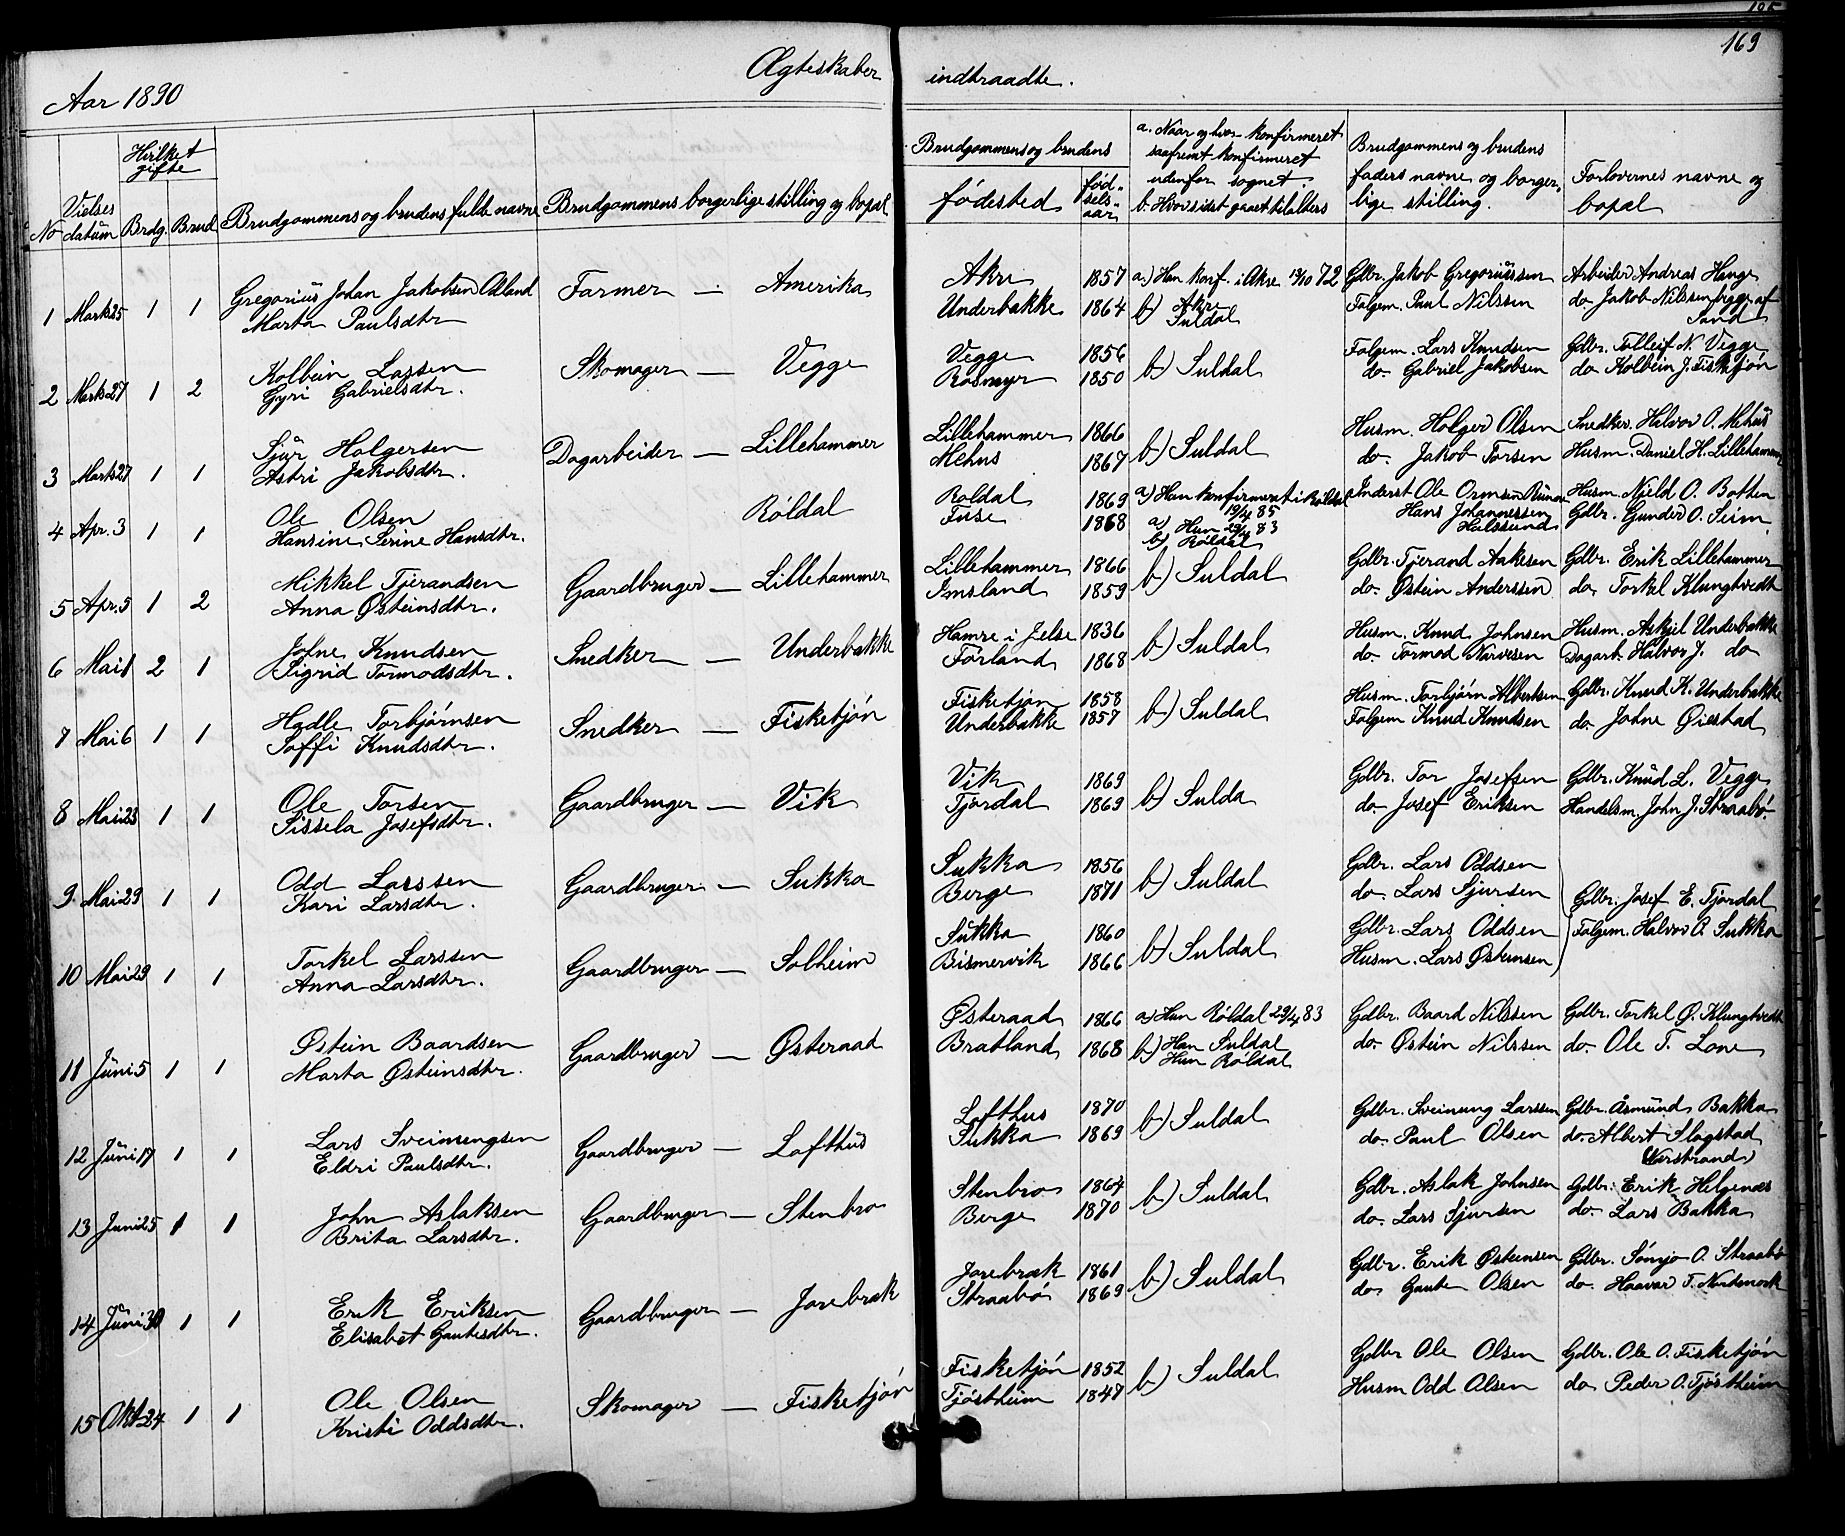 169
Aar 1890
Ægteskaber indtraadte.
No
Vielses datum
Hvilket gifte
Brdg. Brud
Brudgommens og brudens fulde navne
Brudgommens borgerlige stilling og bopæl
Brudgommens og brudens
fødested
fødselsaar
a. Naar og hvor konfirmeret
saafremt konfirmeret
udenfor sognet.
b. Hvor sidst gaaet til alters
Brudgommens og brudens
faders navne og borger-
lige stilling.
Forlovernes navne og
bopæl
1 Marts 25 1 1 Gregorius Johan Jakobsen Ødland Farmer — Amerika Akre 1857 a) Han konf. i Akre 13/10 72 Gdbr. Jakob Gregoriussen Arbeider Andreas Hauge
Marta Paulsdtr Underbakke 1864 b) Akre Suldal Folgem. Paul Nilssen do Jakob Nilssen begge af Sand
2 Marts 27 1 2 Kolbein Larssen Skomager — Vegge Vegge 1856 b) Suldal Folgem. Lars Knudsen Gdbr. Tolleif N. Vegge
Gyri Gabrielsdtr. Rosmyr 1850 do. Gabriel Jakobsen do Kolbein J. Fisketjøn
3 Marts 27 1 1 Sjur Holgersen Dagarbeider — Lillehammer Lillehammer 1866 b) Suldal Husm. Holger Olsen Snedker. Halvor O. Mehus
Astri Jakobsdtr. Mehus 1867 do. Jakob Torsen Husm. Daniel H. Lillehammer
4 Apr. 3 1 1 Ole Olsen Røldal Roldal 1869 a) Han konfirmeret i Røldal 19/4 85 Inderst Ole Ormsen Husm. Njeld O. Botten
Hansine Serine Hansdtr. Fuse 1868 a) Hun 29/4 83 b) Røldal Hans Johannessen Halssund Gdbr. Gunder O. Seim
5 Apr. 5 1 2 Mikkel Tjerandsen Gaardbruger — Lillehammer Lillehammer 1866 b) Suldal Gdbr. Tjerand Aakesen Gdbr. Erik Lillehammer
Anna Østeinsdtr. Imsland 1859 do. Østein Anderssen do. Torkel Klungtvedt
6 Mai 1 2 1 Johne Knudsen Snedker — Underbakke Hamre i Jelse 1836 b) Suldal Husm. Knud Johnsen Husm. Askjel Underbakke
Sigrid Tormodsdtr. Førland 1868 do. Tormod Narvesen Dagarb. Halvor J. do
7 Mai 6 1 1 Hadle Torbjørnsen Snedker — Fisketjøn Fisketjøn 1858 b) Suldal Husm. Torbjørn Albertsen Gdbr. Knud K. Underbakke
Soffi Knudsdtr. Underbakke 1857 Folgem Knud Knudsen do. Johne Øiestad
8 Mai 23 1 1 Ole Torsen Gaardbruger — Vik Vik 1869 b) Sulda Gdbr. Tor Josefsen Gdbr. Knud L. Vegge
Sissela Josefsdtr. Tjordal 1869 do Josef Eriksen Handelsm. John J. Straabø.
9. Mai 29 1 1 Odd Larssen Gaardbruger — Sukka Sukka 1856 b) Suldal Gdbr. Lars Oddsen
Kari Larsdtr. Berge 1871 do. Lars Sjursen Gdbr. Josef E. Tjordal
10 Mai 29 1 1 Torkel Larssen Gaardbruger — Solheim Sukka 1860 b) Suldal Gdbr. Lars Oddsen Folgem. Halvor A Sukka
Anna Larsdtr. Bismervik 1866 Husm. Lars Østeinsen
11 Juni 5 1 1 Østein Baardsen Gaardbruger — Østeraad Østeraad 1866 a) Hun Røldal 29/4 83 Gdbr. Baard Nilssen Gdbr. Torkel Ø. Klungtvedt
Marta Østeinsdtr. Bratland 1868 b) Han Suldal Hun Røldal do. Østein Nilssen do. Ole T. Lone
12 Juni 17 1 1 Lars Sveinungsen Gaardbruger — Lofthus Lofthus 1870 b) Suldal Gdbr. Sveinung Larssen Gdbr. Åsmund Bakka
Eldri Paulsdtr. Sukka 1869 do. Paul Olsen do. Albert Slogstad (Nerstrand)
13 Juni 25 1 1 John Aslaksen Gaardbruger — Stenbro Stenbro 1864 b) Suldal Gdbr. Aslak Johnsen Gdbr. Erik Helgenæs
Brita Larsdtr. Berge 1870 do. Lars Sjursen do. Lars Bakka
14 Juni 30 1 1 Erik Eriksen Gaardbruger — Jorebrak Jorebrak 1861 b) Suldal Gdbr. Erik Østeinsen Gdbr. O. Straabø
Elisabet Gautesdtr. Straabø 1869 do Gaute Olsen do. Haavar T. Nordmork
15 Okt 24 1 1 Ole Olsen Skomager — Fisketjøn Fisketjøn 1852 b) Suldal Gdbr Ole Olsen Gdbr. Ole O. Fisketjøn
Kristi Oddsdtr. Tjøstheim 1847 Husm Odd Olsen do Peder O. Tjøstheim